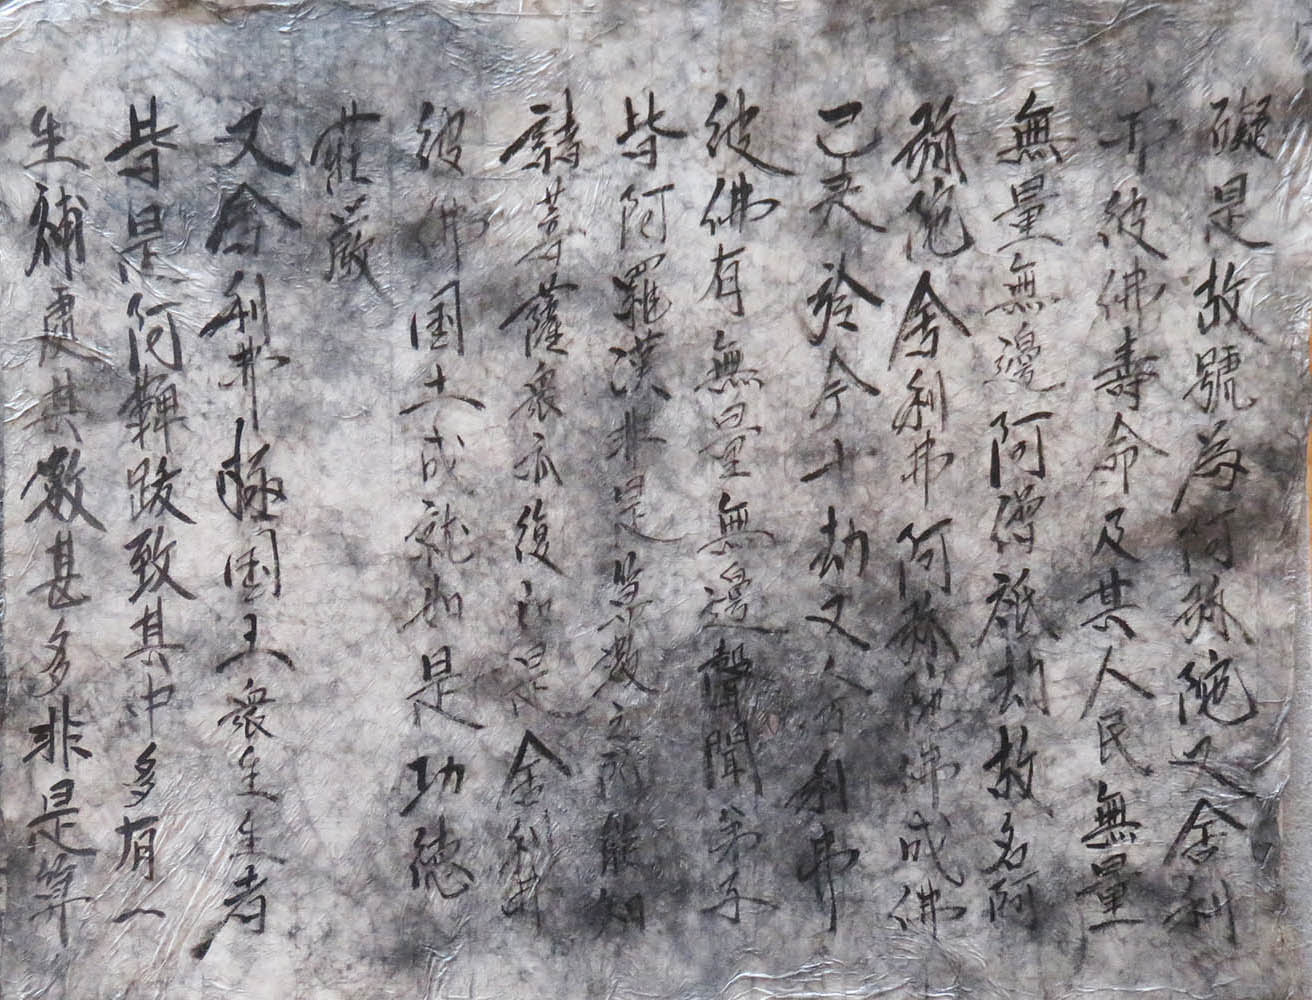 礙是故號為阿弥陀又舍利
弗彼佛壽命及其人民無量
無量無邊阿僧祇劫故名阿
弥陀舍利弗阿弥陀佛成佛
已来於今十劫又舍利弗
彼佛有無量無邊聲聞弟子
皆阿羅漢非是算數之所能知
諸菩薩衆亦復如是舍利弗
彼佛国土成就如是功德
莊嚴
又舍利弗極国土衆生生者
皆是阿鞞跋致其中多有一
生補處其數甚多非是算